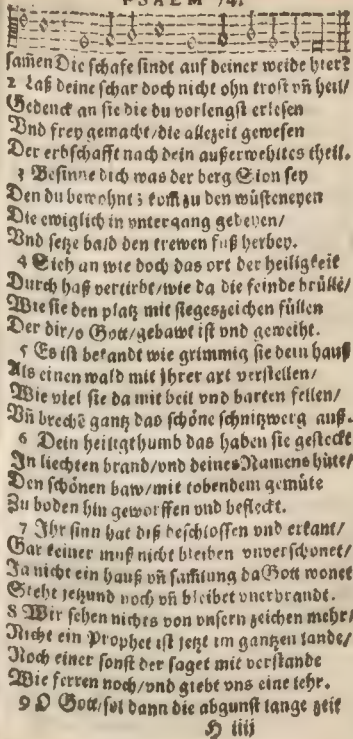 PSALM 74.
samen Die schafe sindt auf deiner weide hier?
2 Laß deine schar doch nicht ohn trost vñ heil/
Gedenck an sie die du vorlengst erlesen
Vnd frey gemacht/die allezeit gewesen
Der erbschafft nach dein außerwehltes theil.
3 Besinne dich was der berg Sion sey
Den du bewohnt; kom zu den wüsteneyen
Die ewiglich in vntergang gedeyen/
Vnd setze bald den trewen fuß herbey.
4 Sieh an wie doch das ort der heiligkeit
Durch haß vertirbt/wie da die feinde brüllē/
Wie sie den platz mit siegeszeichen füllen
Der dir/o Gott/gebawt ist vnd geweiht.
5 Es ist bekandt wie grimmig sie dein hauß
Als einen wald mit jhrer axt verstellen/
Wie viel sie da mit beil vnd barten fellen/
Vñ brechē gantz das schöne schnitzwerg auß.
6 Dein heiligthumb das haben sie gesteckt
In liechten brand/vnd deines Namens hütte/
Den schönen baw/mit tobendem gemüte
Zu boden hin geworffen vnd befleckt.
7 Ihr sinn hat diß beschlossen vnd erkant/
Gar keiner muß nicht bleiben vnverschonet/
Ja nicht ein hauß vñ samlung da Gott wonet
Steht jetzund noch vñ bleibet vnerbrandt.
8 Wir sehen nichtes von vnsern zeichen mehr/
Nicht ein Prophet ist jetzt im gantzen lande/
Noch einer sonst der saget mit verstande
Wie ferren noch/vnd giebt vns eine lehr.
9 O Gott/sol dann die abgunst lange zeit
H iiij